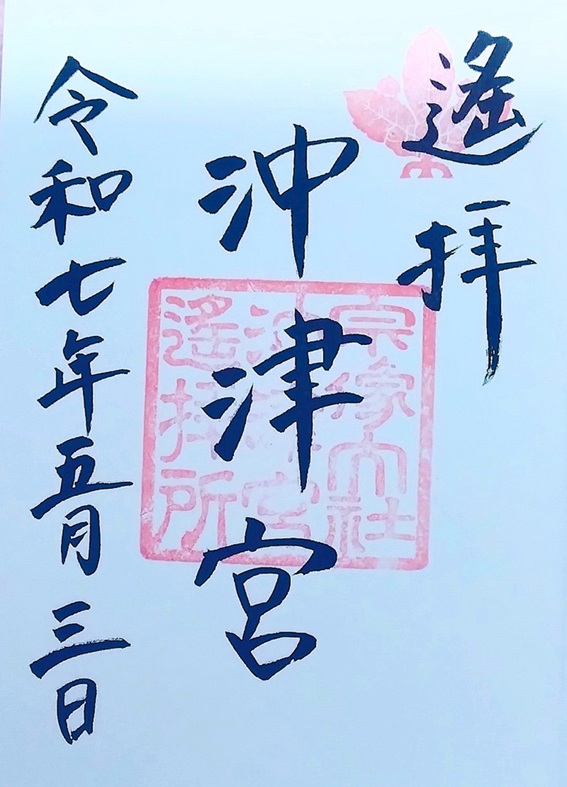 遙拝
沖津宮
令和七年五月三日
宗像大社
沖津宮
遙拝所